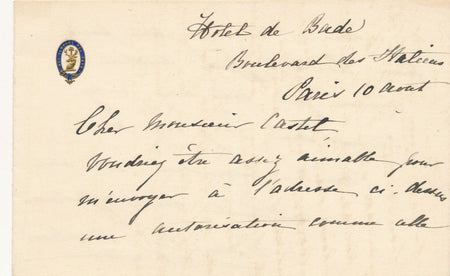 Hotel de Bade
Boulevard des Italiens
Paris 10 aout
Cher Monsieur Castel
Voudriez être assez aimable pour
m'envoyer à l'adresse ci-dessus
une autorisation comme elle